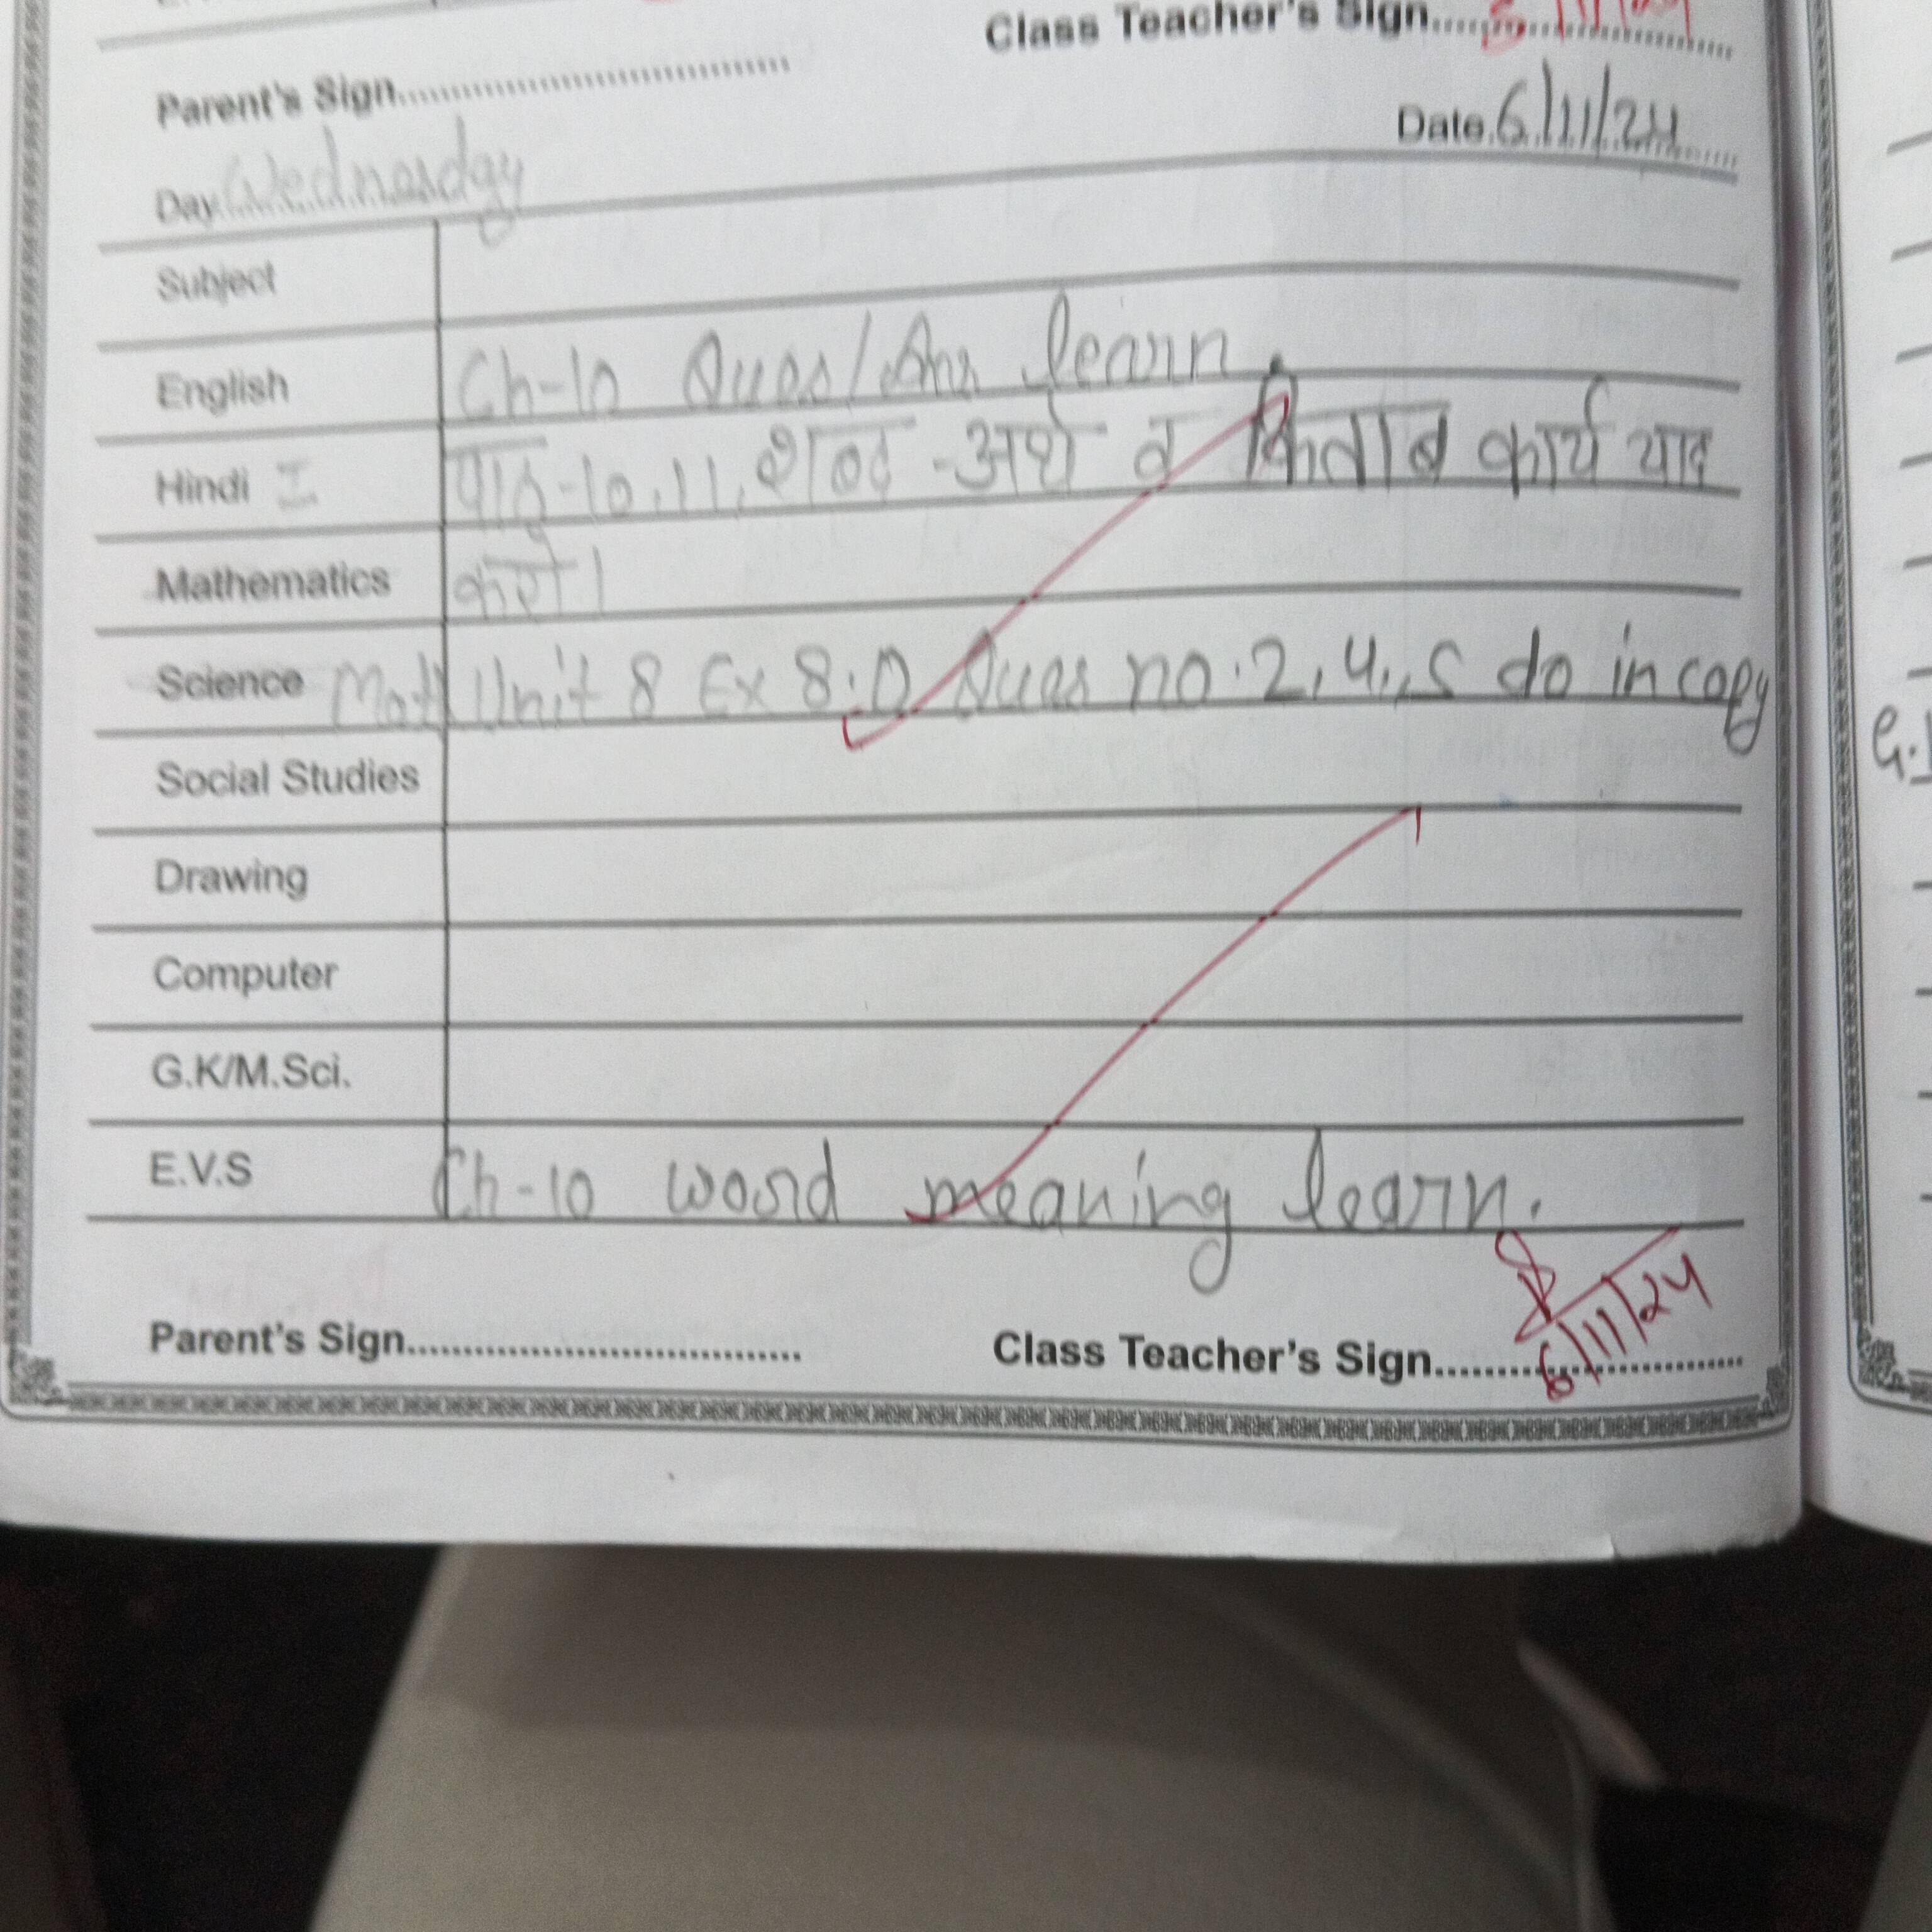 Class Teacher's Sign
Parent's Sign
Date 6/11/24
Day Wednesday
Subject
English Ch-10 Ques/Ans learn.
Hindi I पाठ-10,11, शब्द-अर्थ व किताब कार्य याद
Mathematics करो।
Science Math Unit 8 Ex 8.D Ques no. 2, 4, 5 do in copy
Social Studies
Drawing
Computer
G.K/M.Sci.
E.V.S Ch-10 word meaning learn.
Parent's Sign
Class Teacher's Sign 6/11/24